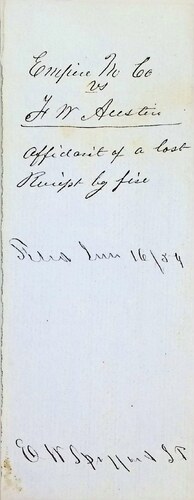 Empire M Co
vs
F W Austin
Affidavit of a lost
Receipt by fire
Filed Jun 16/59
E W Spofford JP